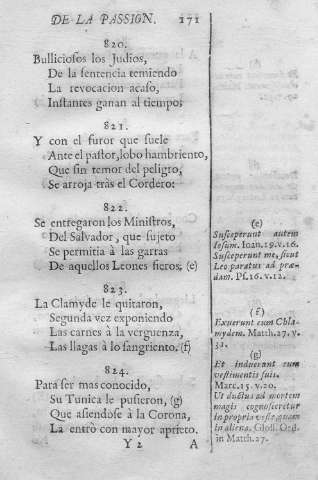 DE LA PASSION. 171
820.
Bulliciosos los Judios,
De la sentencia temiendo
La revocacion acaso,
Instantes ganan al tiempo;
821.
Y con el furor que suele
Ante el pastor, lobo hambriento,
Que sin temor del peligro,
Se arroja tràs el Cordero:
822.
Se entregaron los Ministros,
Del Salvador, que sujeto
Se permitia à las garras
De aquellos Leones fieros; (e)
823.
La Clamyde le quitaron,
Segunda vez exponiendo
Las carnes à la verguenza,
Las llagas à lo sangriento. (f)
824.
Para ser mas conocido,
Su Tunica le pusieron, (g)
Que asiendose à la Corona,
La entrò con mayor aprieto.
Y 2 A
(e)
Susceperunt autem
Iesum. Ioan. 19. v. 16.
Susceperunt me, sicut
Leo paratus ad præ-
dam. Ps. 16. v. 12.
(f)
Exuerunt eum Chla-
mydem. Matth. 27. v.
31.
(g)
Et induerunt eum
vestimentis suis.
Marc. 15. v. 20.
Ut ductus ad mortem
magis cognosceretur
in propria veste, quam
in aliena. Glos. Ord.
in Matth. 27.